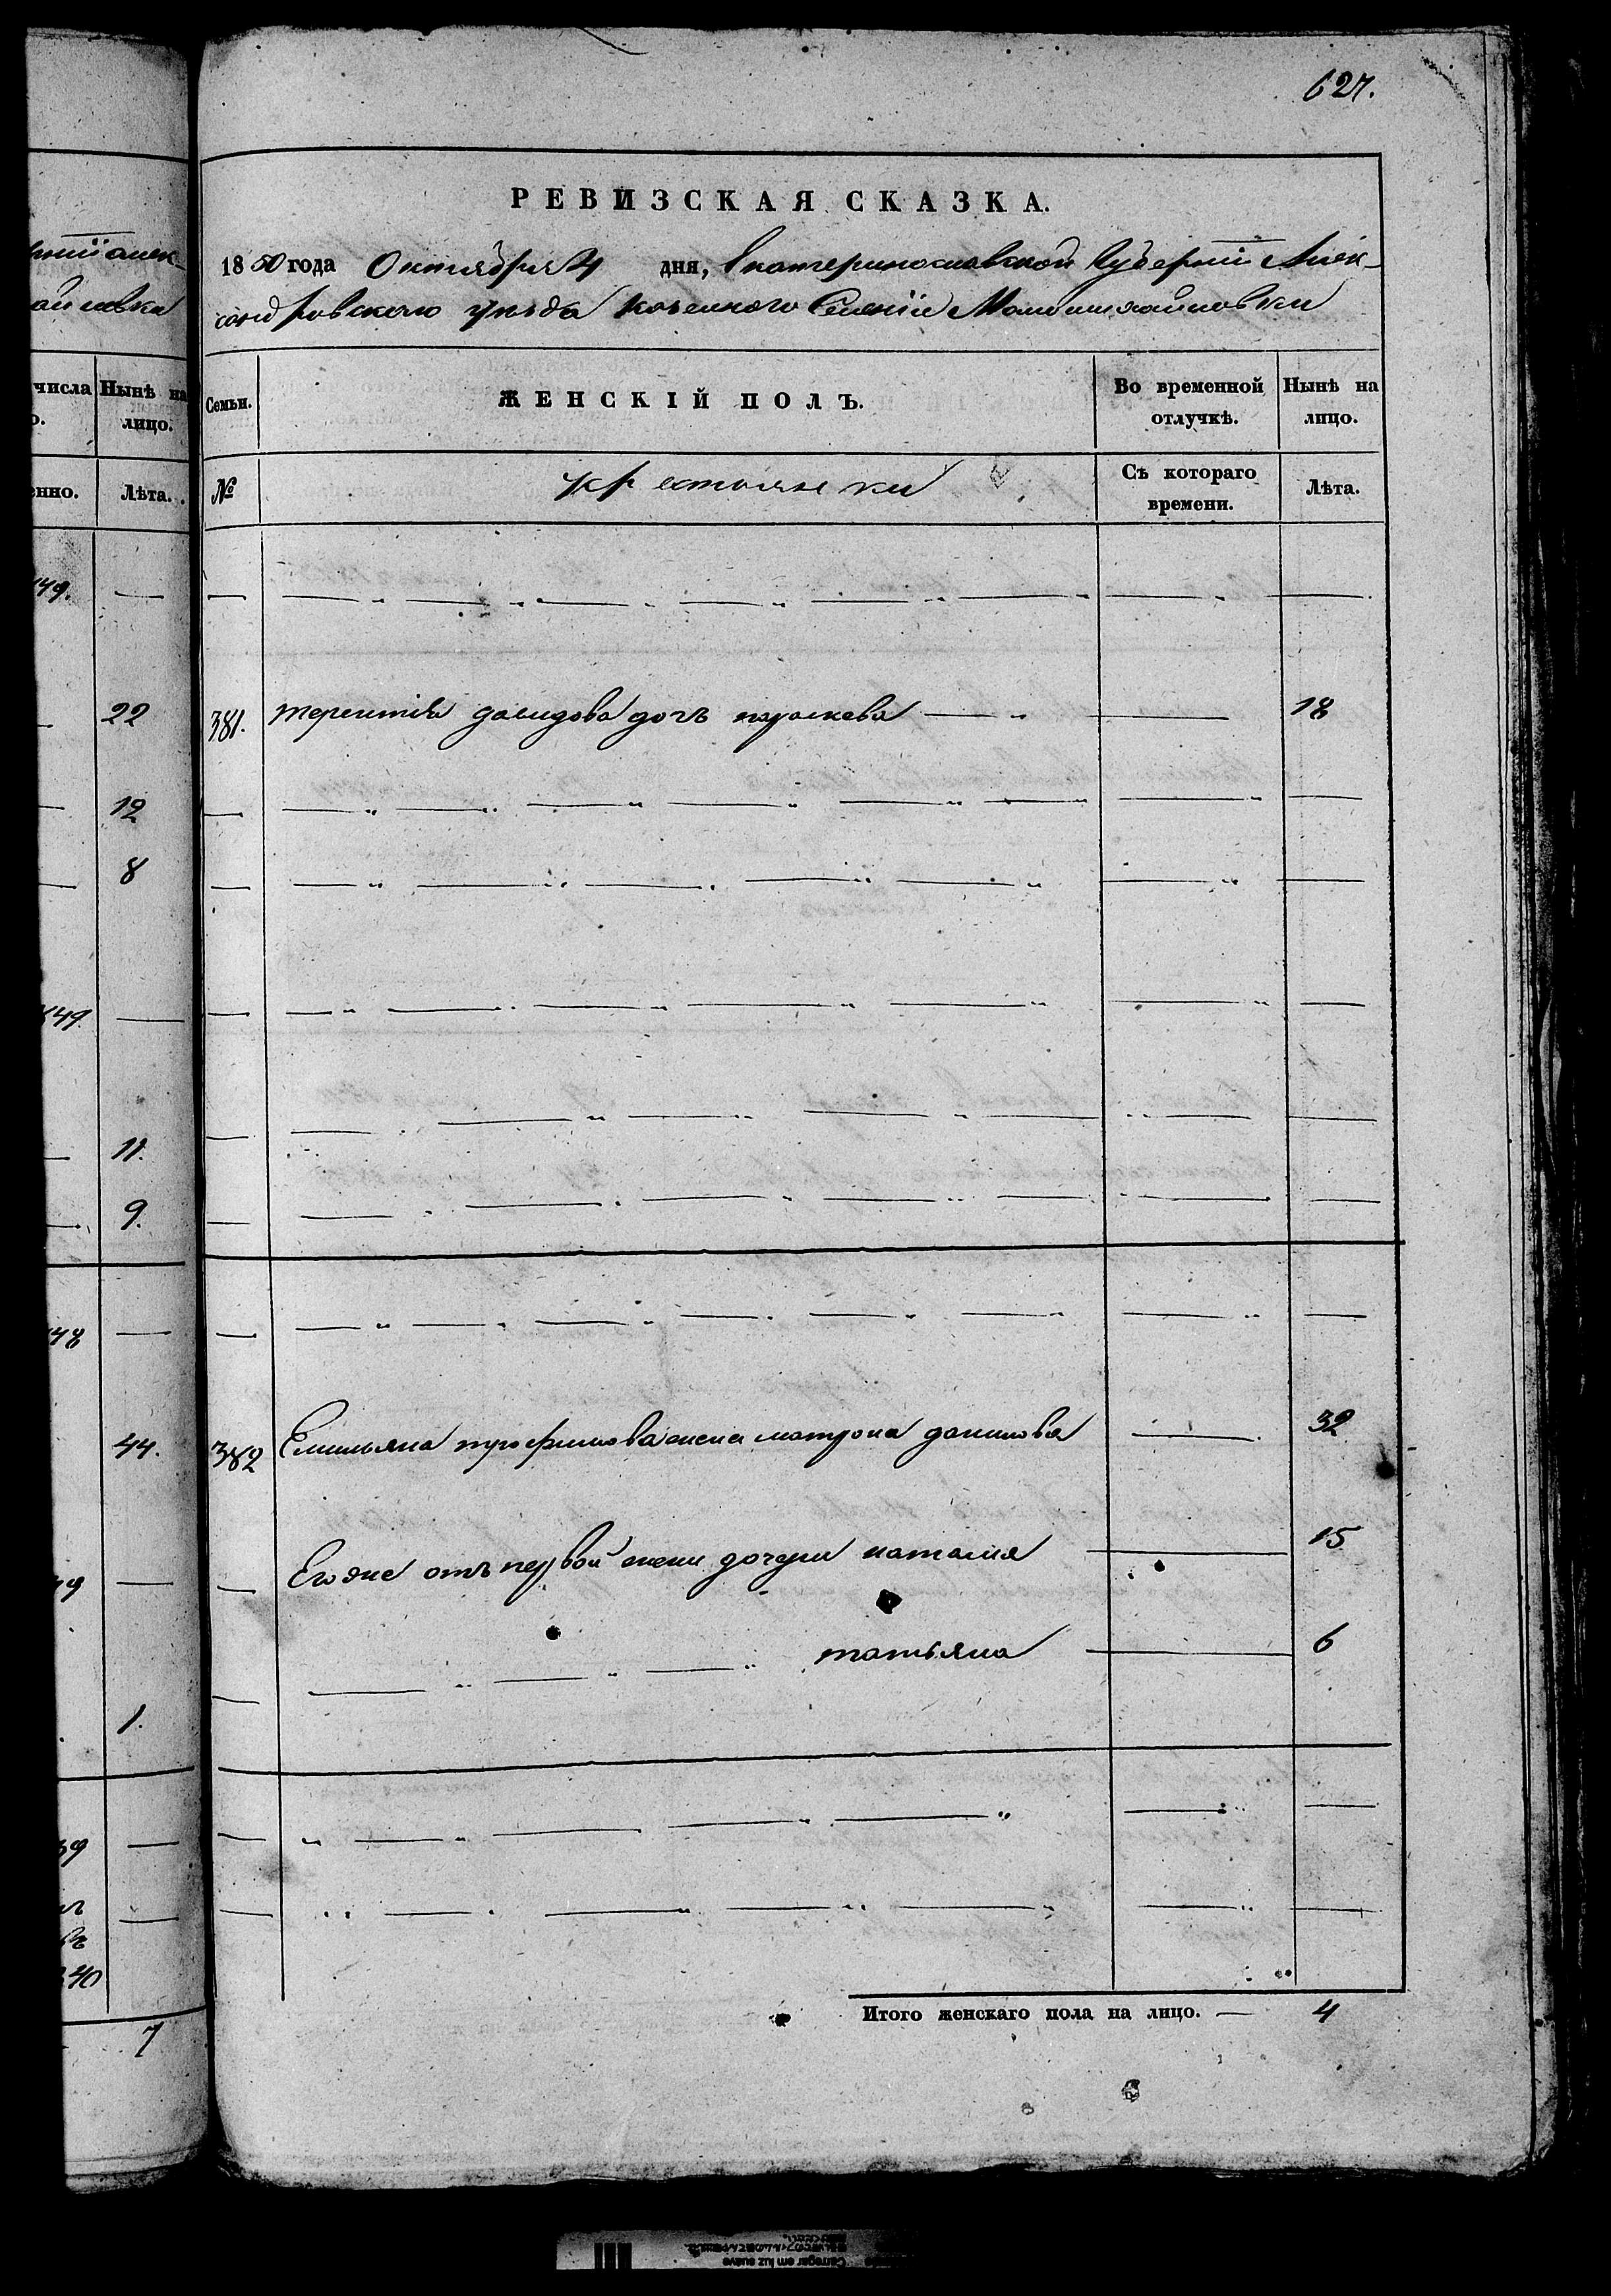 627.
РЕВИЗСКАЯ СКАЗКА.
1850 года Октября 4 дня, Екатеринославской Губерніи Алек-
сандровского уезда Казенного Селенія Маломихайловки
Семьи.
ЖЕНСКІЙ ПОЛЪ.
Во временной отлучкѣ.
Нынѣ на лицо.
№
крестьянки
Съ котораго времени.
Лѣта.
381. терентія давидова дочь параскева 18
382 Емильяна трофимова жена матрона данилова 32
Его же отъ первой жены дочери наталия 15
татьяна 6
Итого женскаго пола на лицо. — 4
числа
Нынѣ на лицо.
Лѣта.
22
12
8
11.
9.
44.
1.
7